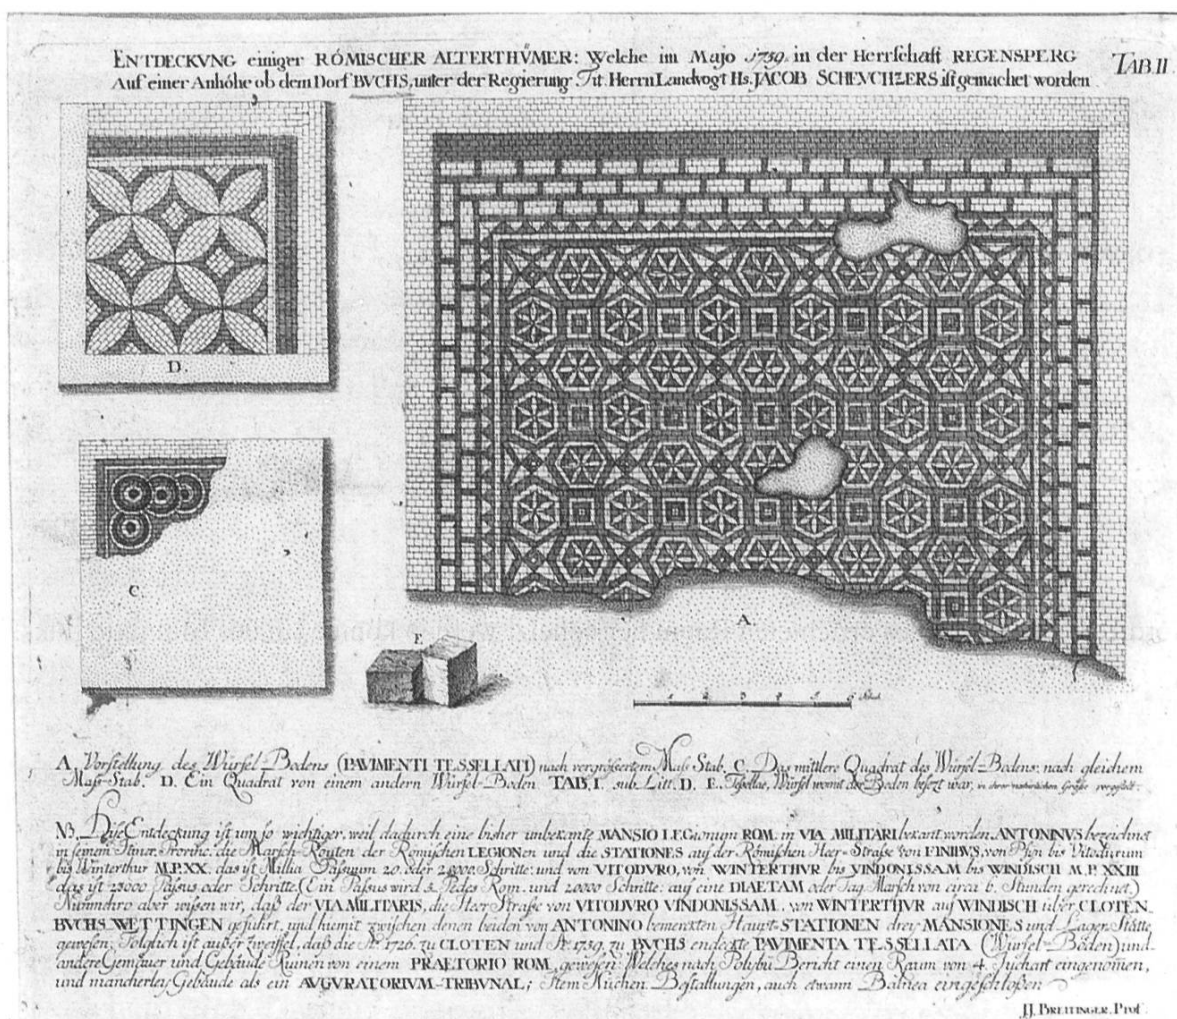 ENTDECKVNG einiger RÖMISCHER ALTERTHÜMER: Welche im Majo 1759. in der Herrschaft REGENSPERG
TAB. II
Auf einer Anhöhe ob dem Dorf BVCHS, unter der Regierung Tit. Herrn Landvogt Hs. JACOB SCHEVCHZERS ist gemachet worden
D.
C.
E
A.
1 2 3 4 5 6 Schuh
A. Vorstellung des Würfel-Bodens (PAVIMENTI TESSELLATI) nach vergrössertem Mass-Stab. C. Das mittlere Quadrat des Würfel-Bodens, nach gleichem
Mass-Stab. D. Ein Quadrat von einem andern Würfel-Boden TAB. I. sub. Litt. D. E. Tessellae, Würfel womit der Boden besezt war, in ihrer natürlichen Grösse vorgestelt.
NB. Dise Entdeckung ist um so wichtiger, weil dadurch eine bisher unbekante MANSIO LEGionum ROM. in VIA MILITARI bekant worden. ANTONINVS bezeichnet
in seinem Itiner. Provinc. die Marsch-Routen der Römischen LEGIONen und die STATIONES auf der Römischen Heer-Strasse von FINIBVS, von Pfyn bis Vitodurum
bis Winterthur M.P. XX. das ist Millia Passuum 20. oder 20000. Schritte: und von VITODVRO, von WINTERTHVR bis VINDONISSAM bis WINDISCH M.P. XXIII
das ist 23000 Passus oder Schritte. (Ein Passus wird 5. Pedes Rom. und 20000 Schritte auf eine DIAETAM oder Tag-Marsch von circa 6. Stunden gerechnet.)
Nunmehro aber wissen wir, daß der VIA MILITARIS, die Heer-Strasse von VITODVRO VINDONISSAM, von WINTERTHVR auf WINDISCH über CLOTEN,
BVCHS, WETTINGEN geführt, und hiemit zwischen denen beiden von ANTONINO bemerckten Haupt-STATIONEN drey MANSIONES und Lager-Stätte
gewesen: Folglich ist außer zweiffel, daß die Aº. 1726. zu CLOTEN und Aº. 1759. zu BVCHS endeckte PAVIMENTA TESSELLATA (Würfel-Böden) und
andere Gemäuer und Gebäude Ruinen von einem PRAETORIO ROM. gewesen: Welches nach Polybii Bericht einen Raum von 4. Juchart eingenommen,
und mancherley Gebäude als ein AVGVRATORIVM-TRIBVNAL; Item Kuchen Bestallungen, auch etwann Balnea eingeschlossen
J.J. BREITINGER. Prof.